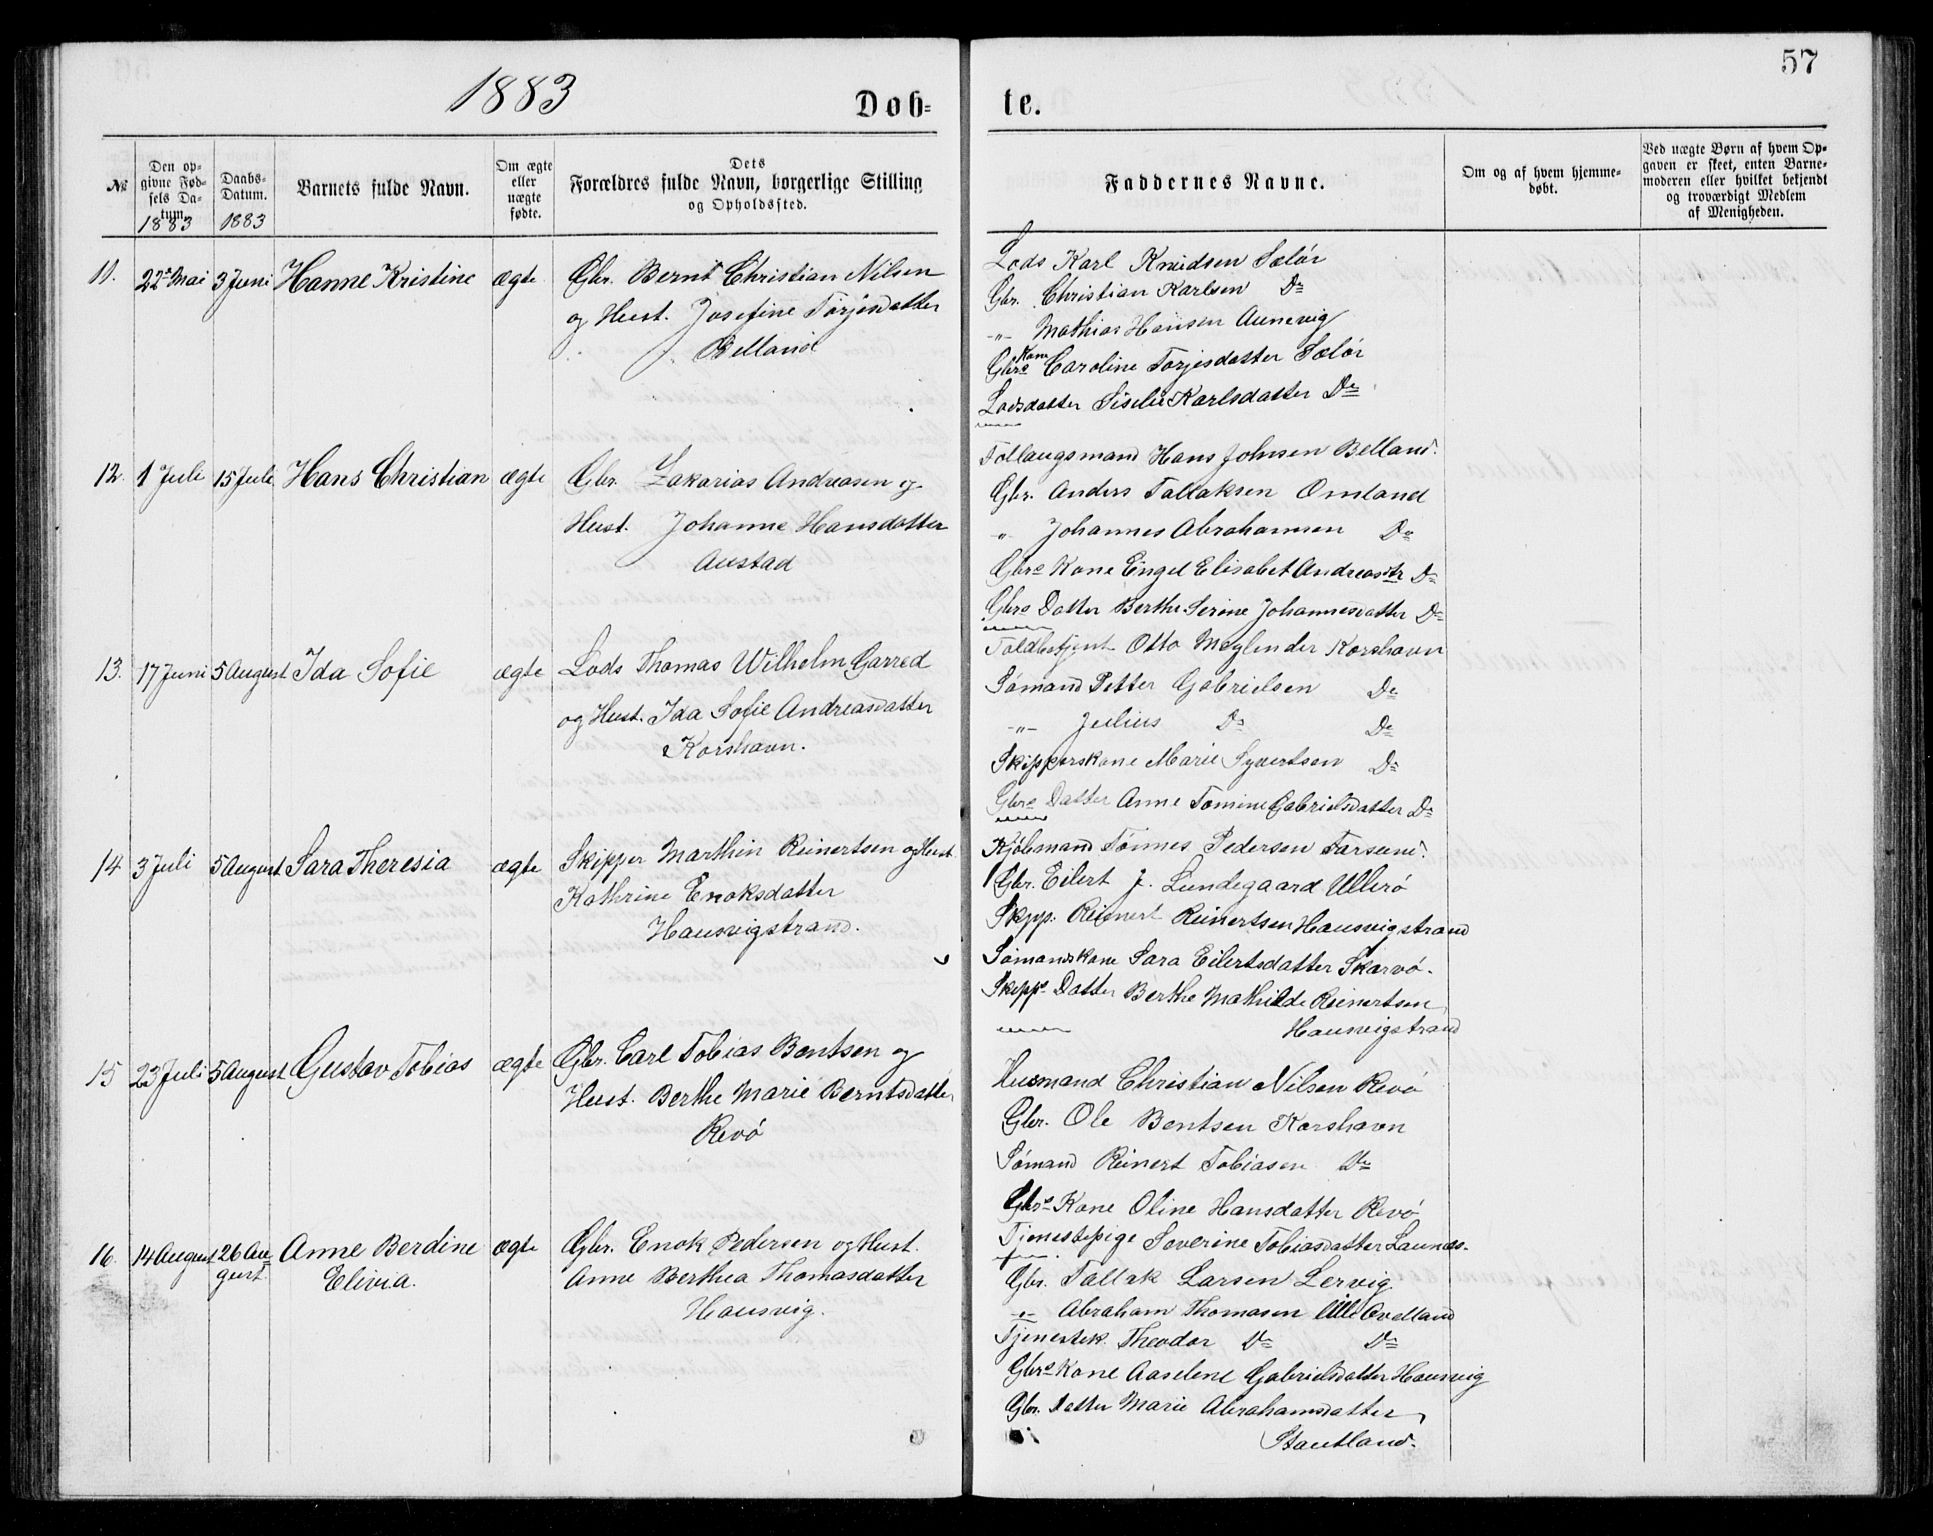 1883
57
Døb=
te.
№
Den op-
givne Fød-
sels Da-
tum.
1883
Daabs-
Datum.
1883
Barnets fulde Navn.
Om ægte
eller
uægte
fødte.
Dets
Forældres fulde Navn, borgerlige Stilling
og Opholdssted.
Faddernes Navne.
Om og af hvem hjemme-
døbt.
Ved uægte Børn af hvem Op-
gaven er skeet, enten Barne-
moderen eller hvilket bekjendt
og troværdigt Medlem
af Menigheden.
11. 22 Mai 3 Juni Hanne Kristine ægte
Gbr. Bernt Christian Nilsen
og Hust. Josefine Torjesdatter
Belland
Lods Karl Knudsen Sælør
Gbr. Christian Karlsen Do
-"- Mathias Hansen Aunevig
Gbrs Kone Caroline Torjesdatter Sælør
Lodsdatter Siselie Karlsdatter Do
12. 1 Juli 15 Juli Hans Christian ægte
Gbr. Zakarias Andreasen og
Hust. Johanne Hansdatter
Austad
Totlaugsmand Hans Johnsen Belland.
Gbr. Anders Tallaksen Omland
-"- Johannes Abrahamsen Do
Gbrs Kone Engel Elisabet Andreasdtr Do
Gbrs Datter Berthe Serine Johannesdatter Do
13. 17 Juni 5 August Ida Sofie ægte
Lods Thomas Wilhelm Garred
og Hust. Ida Sofie Andreasdatter
Korshavn.
Toldbetjent Otto Meylender Korshavn
Sømand Petter Gabrielsen Do
-"- Julius Do Do
Skipperskone Marie Syvertsen Do
Gbrs Datter Anne Tomine Gabrielsdatter Do
14 3 Juli 5 August Sara Theresia ægte
Skipper Marthin Reinertsen og Hust
Kathrine Enoksdatter
Hausvigstrand.
Kjøbmand Tønnes Pedersen Farsund.
Gbr. Eilert J. Lundegaard Ullerø
Skpp. Reinert Reinertsen Hausvigstrand
Sømandskone Sara Eilertsdatter Skarvø.
Skpps Datter Berthe Mathilde Reinertsen
Hausvigstrand
15 23 Juli 5 August Gustav Tobias ægte
Gbr. Carl Tobias Bentsen og
Hust. Berthe Marie Berntsdatter
Revø
Husmand Christian Nilsen Revø
Gbr. Ole Bentsen Korshavn
Sømand Reinert Tobiasen Do
Gbrs Kone Oline Hansdatter Revø
Tjenestepige Severine Tobiasdatter Launes.
16. 14 August 26 Au
gust
Anne Berdine
Elivia.
ægte
Gbr. Enok Pedersen og Hust.
Anne Berthea Thomasdatter
Hausvig.
Gbr. Tallak Larsen Lervig
-"- Abraham Thomasen Lille Avelland
Tjenestek. Theodor Do Do
Gbrs Kone Aaselene Gabrielsdatter Hausvig
Gbr. Datter Marie Abrahamsdatter
Stautland.